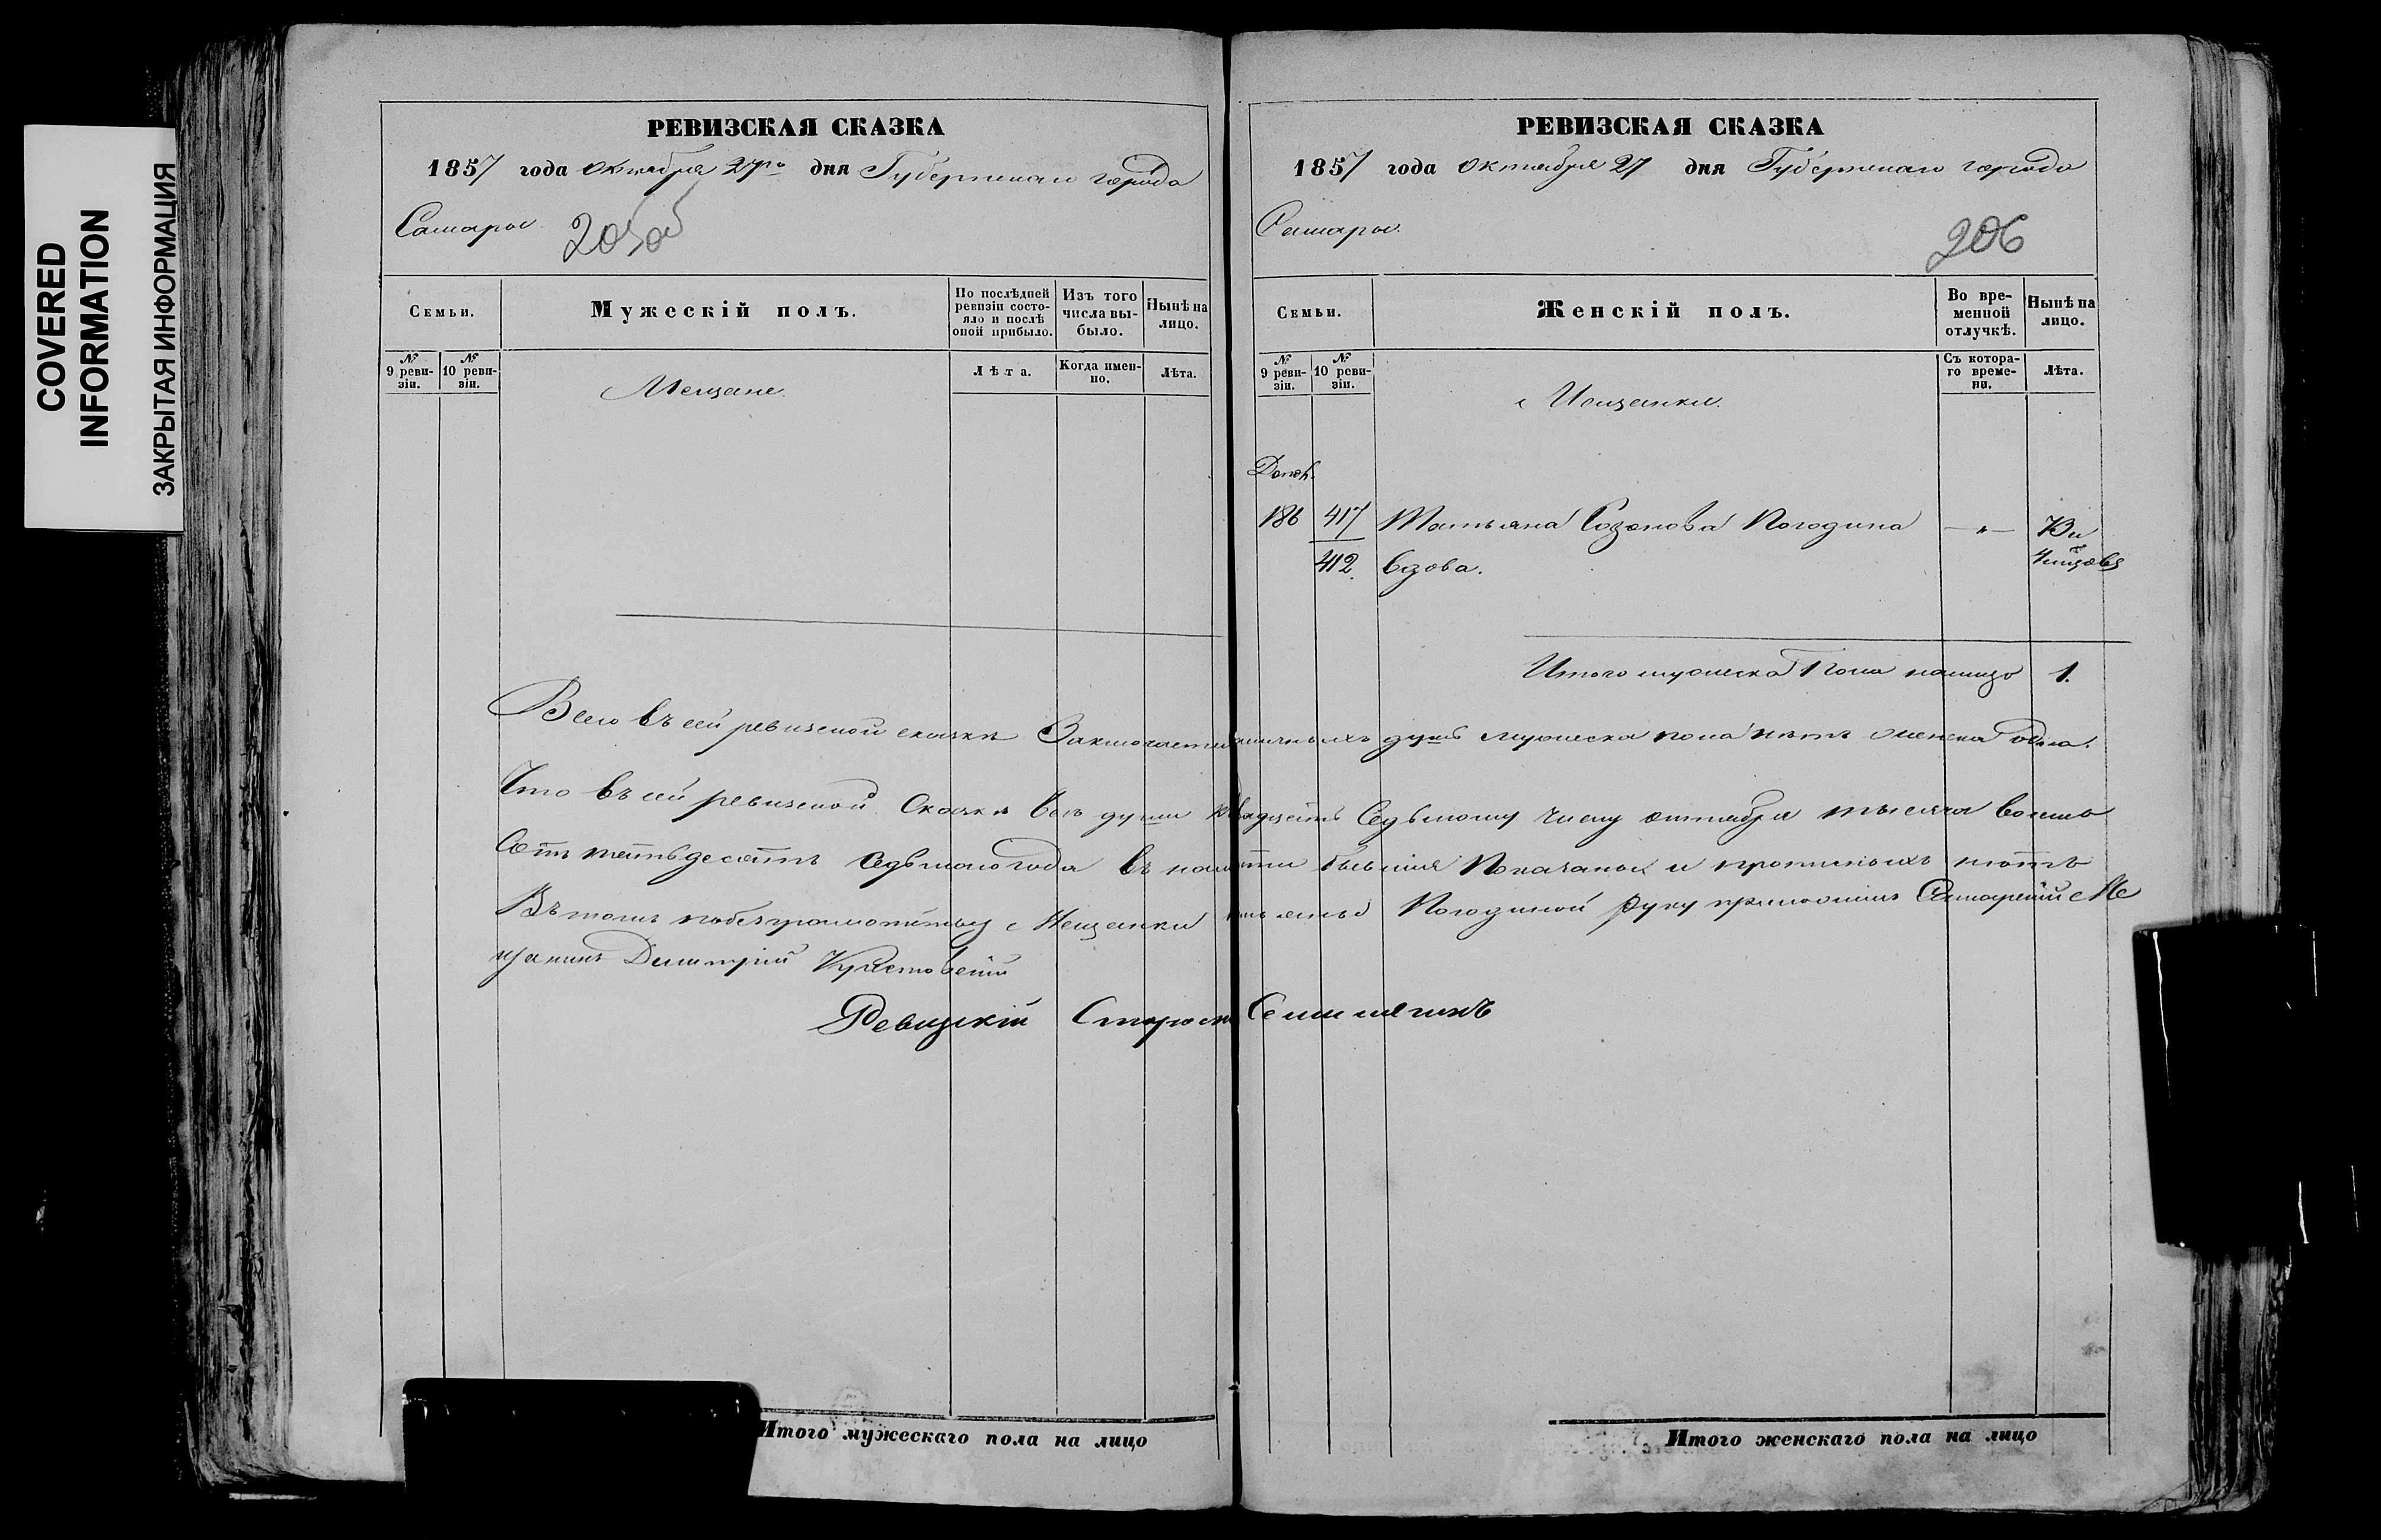 COVERED
INFORMATION
ЗАКРЫТАЯ ИНФОРМАЦИЯ
РЕВИЗСКАЯ СКАЗКА
1857 года октября 27го дня Губернскаго города
Самары. 205об
Семьи.
Мужескій полъ.
По послѣдней ревизіи состояло и послѣ оной прибыло.
Изъ того числа выбыло.
Нынѣ на лицо.
№ 9 ревизіи.
№ 10 ревизіи.
Лѣта.
Когда именно.
Лѣта.
Мещане.
РЕВИЗСКАЯ СКАЗКА
1857 года октября 27 дня Губернскаго города
Самары. 206
Семьи.
Женскій полъ.
Во временной отлучкѣ.
Нынѣ на лицо.
№ 9 ревизіи.
№ 10 ревизіи.
Съ котораго времени.
Лѣта.
Мещанки.
186 417 Татьяна Созонова Погодина — „ — 73 и
412. вдова.
Итого женска пола налицо 1.
Всего въ сей ревизской сказкѣ Заключается наличныхъ душъ мужеска пола нѣтъ женска одна.
Что въ сей ревизской Сказкѣ всѣ души къ двадцать Седьмому числу октября тысяча восемь
Сотъ пятьдесятъ Седьмаго года въ наличности бывшія Показаны и прописныхъ нѣтъ
Въ томъ по безграмотству Мещанки Татьяны Погодиной руку приложилъ Самарскій Ме
щанинъ Димитрій
Ревизскій Староста
Итого мужескаго пола на лицо
Итого женскаго пола на лицо